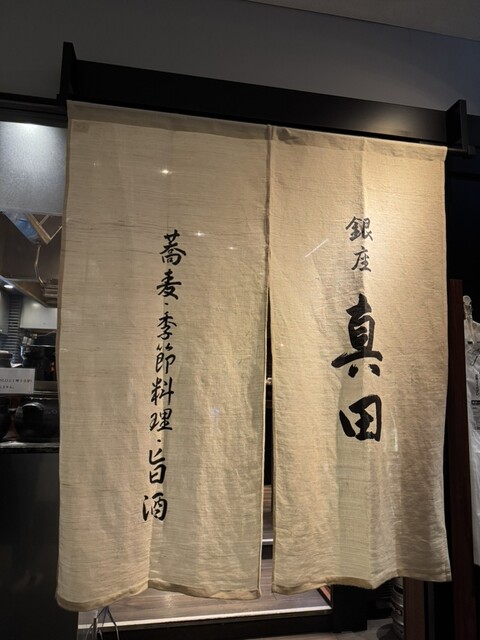 銀座
真田
蕎麦・季節料理・旨酒